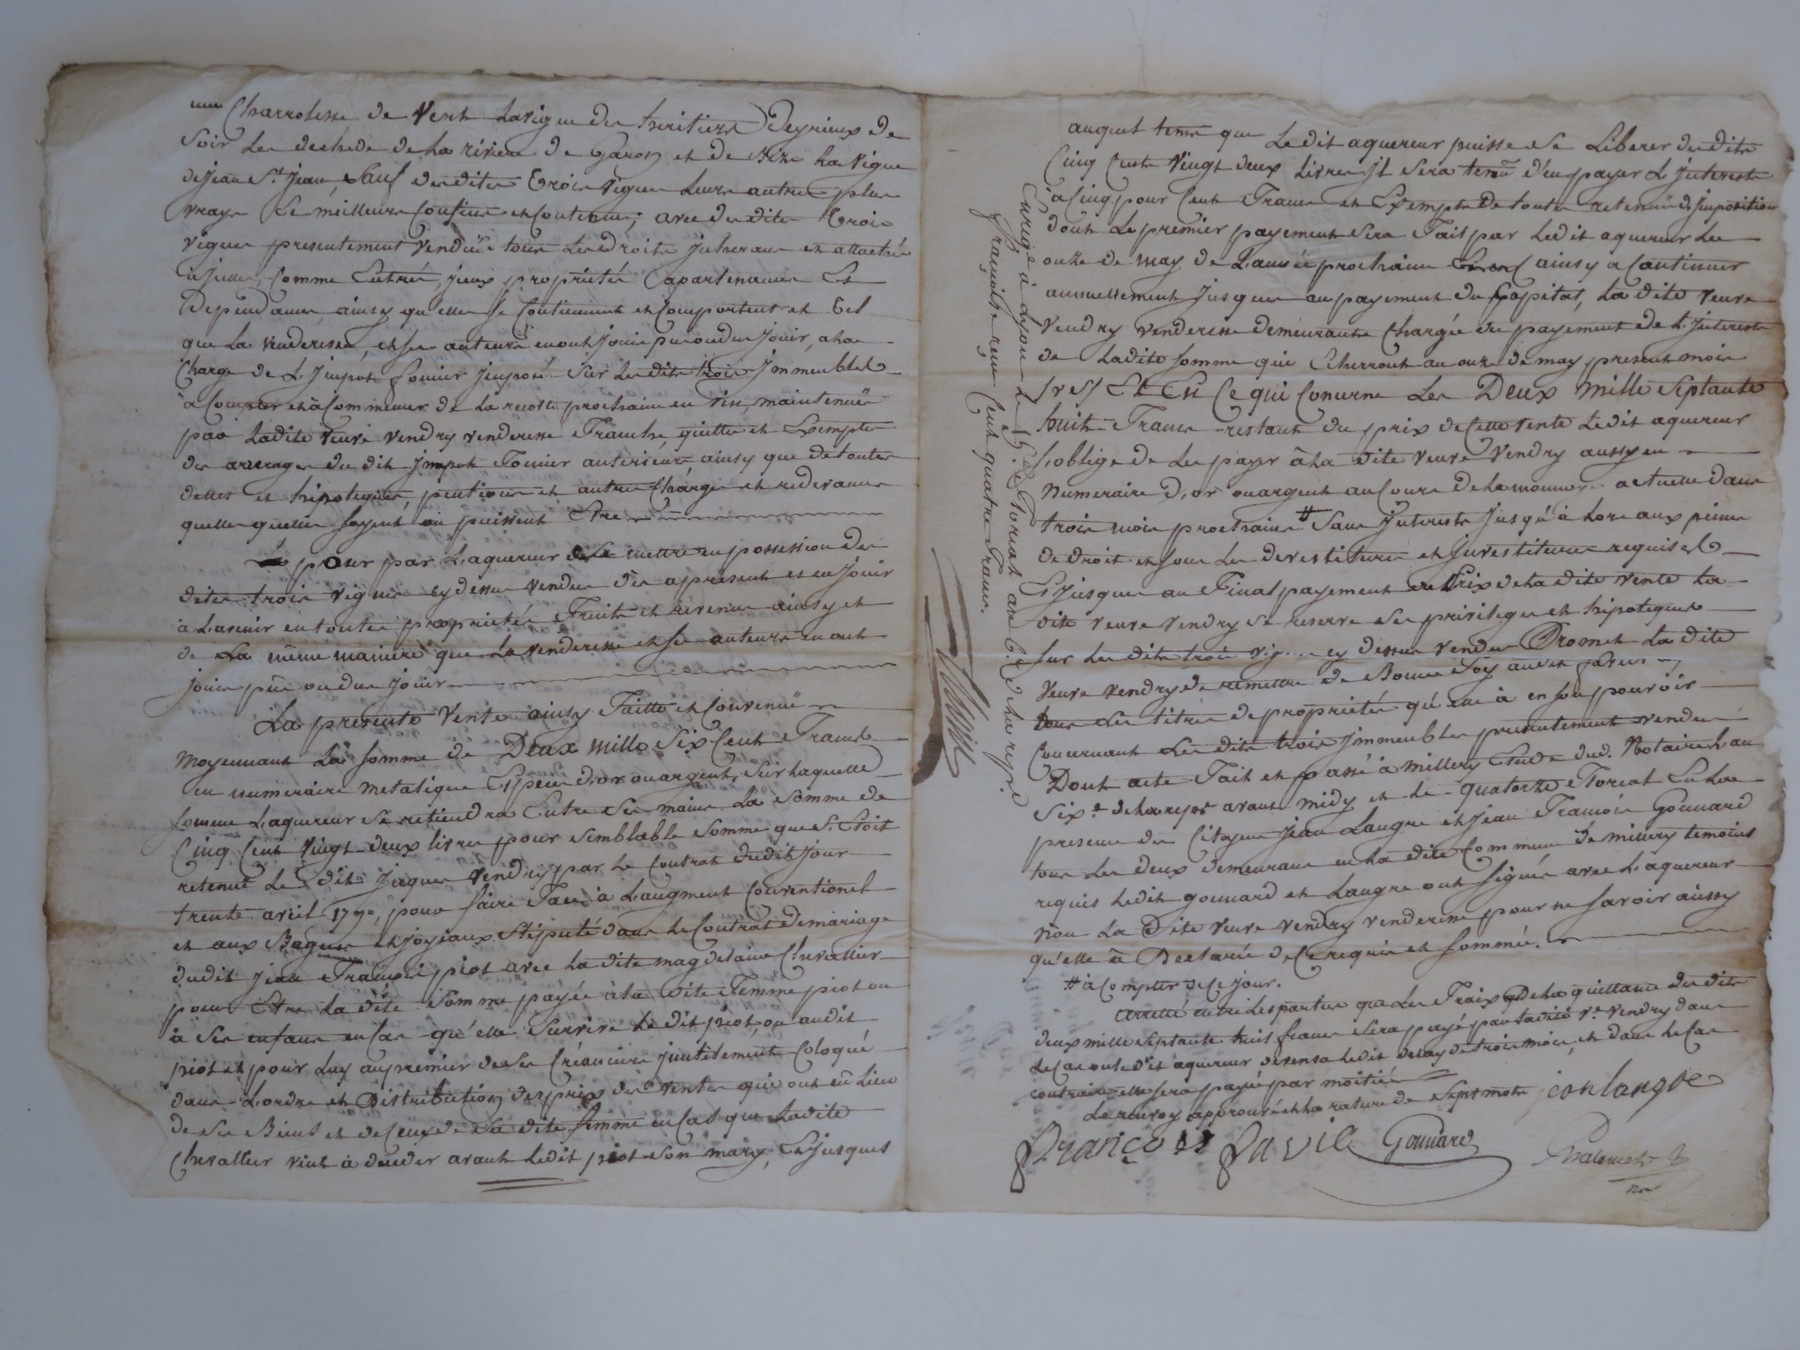 une Charroliere de vent La vigne des heritiers Deyrieux de
soir Les dechide de La riviere de garon et de bize La vigne
de Jean St. Jean, Sauf desdites trois vignes Leurs autres plus
vrays Et meilleurs Confins et Contenus; avec desdites trois
vignes presentement vendües tous Les droits Inherans et attachés
à Jcelles, Comme Entrée, jeux, proprietés apartenances Et
Dependances, ainsy qu'elles se Contiennent et Comportent et tel
que La venderesse, et ses auteurs en ont jouis pu ou du Jouir, a La
Charge de L'Impot foncier Imposé Sur Les dits trois Jmmeubles
à Compter et à Commencer de La recolte prochaine en vin, maintenües
par Ladite veuve vendry venderesse Franches, quittes et Exemptes
des arrerages du dit Impot Foncier anterieurs, ainsy que de toutes
dettes et hipoteques, pentions et autres Charges et redevances
quelles quelles soyent ou puissent Etre
pour par L'aquereur se mettre en possession des
dites trois vignes cy dessus vendues dès apresent et en Jouir
à L'avenir en toutes proprietés Fruits et revenus ainsy et
de La même maniere que La venderesse et ses auteurs en ont
jouis pû ou du Jouir
La presente vente ainsy Faitte et Convenüe
moyennant La somme de Deux mille Six Cent Francs
en numeraire metalique Especes d'or ou argent, Sur Laquelle
somme L'aquereur se retiendra Entre Ses mains La Somme de
Cinq Cent vingt deux livres pour semblable somme que S'Etoit
retenue Le dit Jaques Vendry par Le Contrat dudit jour
trente avril 1790, pour faire Face à L'augment Conventionel
et aux Bagues et joyaux Stipulé dans Le Contrat de mariage
dudit Jean François piot avec La dite magdelaine Chevallier
pour Etre La dite Somme payée à La dite Femme piot ou
à Ses enfans en Cas qu'elle Survive Le dit piot, ou audit
piot et pour Luy au premier de ses Créanciers jnutilement Coloqué
dans L'ordre et Distribution des prix des ventes qui ont eû Lieu
de Ses Biens et de Ceux de Sa dite femme en Cas que Ladite
Chevallier vint à deceder avant Ledit piot son mary, Et jusques
auquel tems que Le dit aquereur puisse se Liberer desdits
Cinq Cents vingt deux Livres Jl sera tenu d'en payer L'Jnterests
à Cinq pour Cent Francs et Exempts de toutes retenues d'Jmposition
dont Le premier payement sera Fait par Ledit aquereur Les
onze de may de L'année prochaine ainsy a Continuer
annuellement Jusques au payement du Capital, La dite veuve
vendry venderesse demeurante Chargée du payement de L'Jnterests
de Ladite somme qui Echerront au onze de may present mois
Et En Ce qui Concerne Les Deux mille Septante
huit Francs restant du prix de Cette vente Ledit aquereur
s'oblige de Les payer à La dite veuve vendry aussy en
numeraire d'or ou argent au Cours de La monnoye actuelle dans
trois mois prochains # Sans Jnterests Jusqu'à Lors aux peines
de droit et sous Les devestitures et jnvestitures requises
Et jusques au Final payement du Prix de La dite vente La
dite veuve vendry se reserve ses privileges et hipoteques
sur Les dits trois vignes cy dessus vendues Promet La dite
veuve vendry de remettre de Bonne Foy
tous Les titres de proprietés qu'elle à en son pouvoir
Concernant Les dits trois Jmmeubles presentement vendus
Dont acte Fait et passé à millery Etude dud. Notaire L'an
Six.e de La rep. avant midy et le quatorze Floreal En La
presence des Citoyens jean Langre et jean François Gonnard
tous Les deux demeurans en La dite Commune de millery temoins
requis Ledit gonnard et Langre ont signé avec L'aquereur
non La Dite veuve vendry venderesse pour ne savoir aussy
qu'elle à Declarée de Ce requise et sommée.
# à Compter de Ce jour.
arretté entre Les parties que Les Fraix de La quittance desdits
deux mille Septante huit francs sera payé par Ladite Ve. vendry dans
Le Cas ou Ledit aquereur devensa Ledit delay de trois mois, et dans Le Cas
contraire elle sera payée par moitié
Le renvoy approuvé et La rature de Sept mots jean langre
François favie Gonnard
Enregé à Lyon Le 19e. Floreal an 6e. de La rep.
françoise reçu Cent quatre Francs.